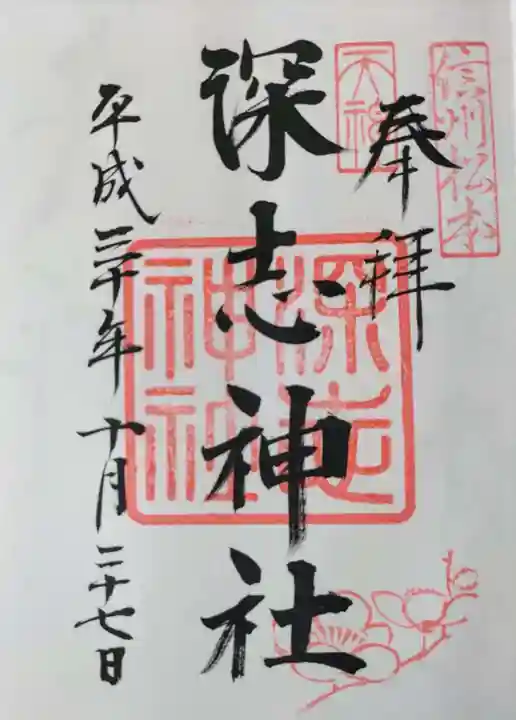 信州松本
奉拝
天神
深志神社
深志神社
平成三十年十月二十七日